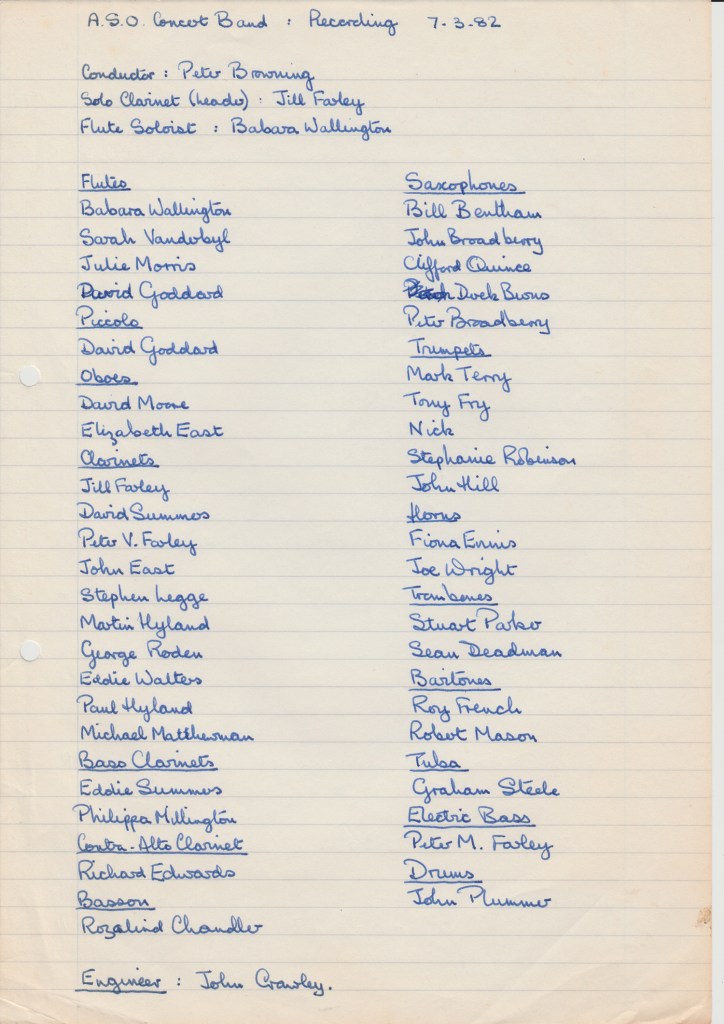 A.S.O. Concert Band : Recording 7-3-82
Conductor : Peter Browning
Solo Clarinet (Leader) : Jill Farley
Flute Soloist : Babara Wallington
Flutes
Babara Wallington
Sarah Vanderbyl
Julie Morris
David Goddard
Piccolo
David Goddard
Oboes
David Moore
Elizabeth East
Clarinets
Jill Farley
David Summers
Peter V. Farley
John East
Stephen Legge
Martin Hyland
George Roden
Eddie Walters
Paul Hyland
Michael Matthewman
Bass Clarinets
Eddie Summers
Philippa Millington
Contra-Alto Clarinet
Richard Edwards
Basson
Rozalind Chandler
Saxophones
Bill Bentham
John Broadberry
Clifford Quince
Derek Burns
Peter Broadberry
Trumpets
Mark Terry
Tony Fry
Nick
Stephanie Robinson
John Hill
Horns
Fiona Ennis
Joe Wright
Trombones
Stuart Parker
Sean Deadman
Baritones
Roy French
Robert Mason
Tuba
Graham Steele
Electric Bass
Peter M. Farley
Drums
John Plummer
Engineer : John Crawley.